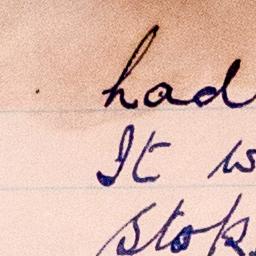 had
It w
stok